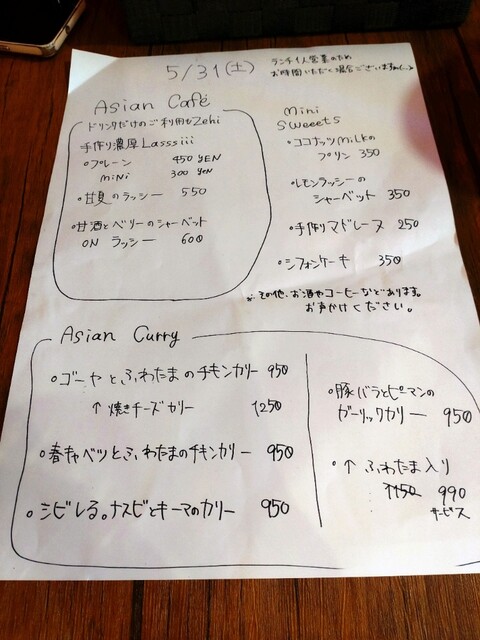 5/31(土)
ランチ1人営業のため
お時間いただく場合ございますm(_ _)
Asian Café
ドリンクだけのご利用もZehi
手作り濃厚Lasssiii
・プレーン 450 YEN
mini 300 YEN
・甘夏のラッシー 550
・甘酒とベリーのシャーベット
ON ラッシー 600
mini
sweeets
・ココナッツmilkの
プリン 350
・レモンラッシーの
シャーベット 350
・手作りマドレーヌ 250
・シフォンケーキ 350
※その他、お酒やコーヒーなどあります。
お声かけください。
Asian Curry
・ゴーヤとふわたまのチキンカリー 950
↑焼きチーズカリー 1250
・春キャベツとふわたまのチキンカリー 950
・シビレる。ナスビとキーマのカリー 950
・豚バラとピーマンの
ガーリックカリー 950
・↑ふわたま入り
1150 990
サービス